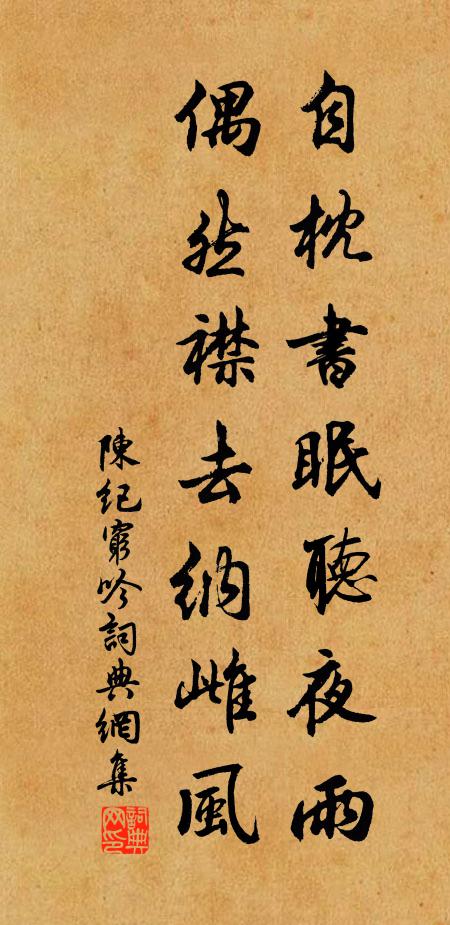 自枕書眠聽夜雨
偶然襟去納雌風
陳紀窮吟詞典網集
詞典網印